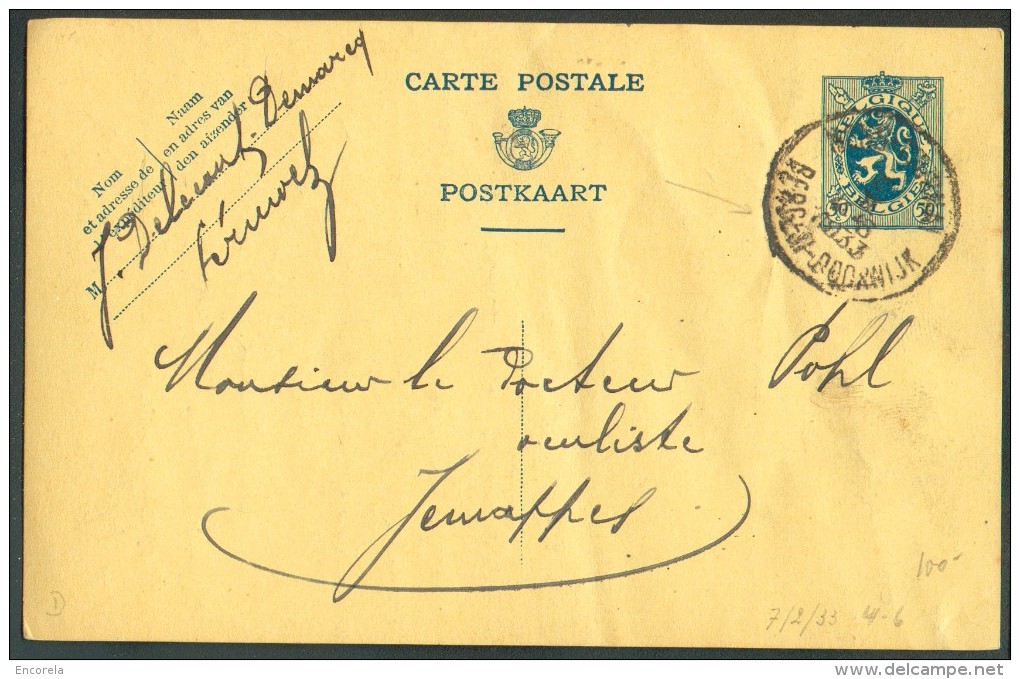 CARTE POSTALE
POSTKAART
Nom
et adresse de
l'expéditeur
Naam
en adres van
den afzender
M
J. Delecaut-Demarcq
BELGIQUE
BELGIË
50 50
1933
BERGEN-DOORNIJK
Monsieur le Docteur Pohl
oculiste
Jemappes
100-
D
7/2/33 4-6
Encorela
www.delcampe.net